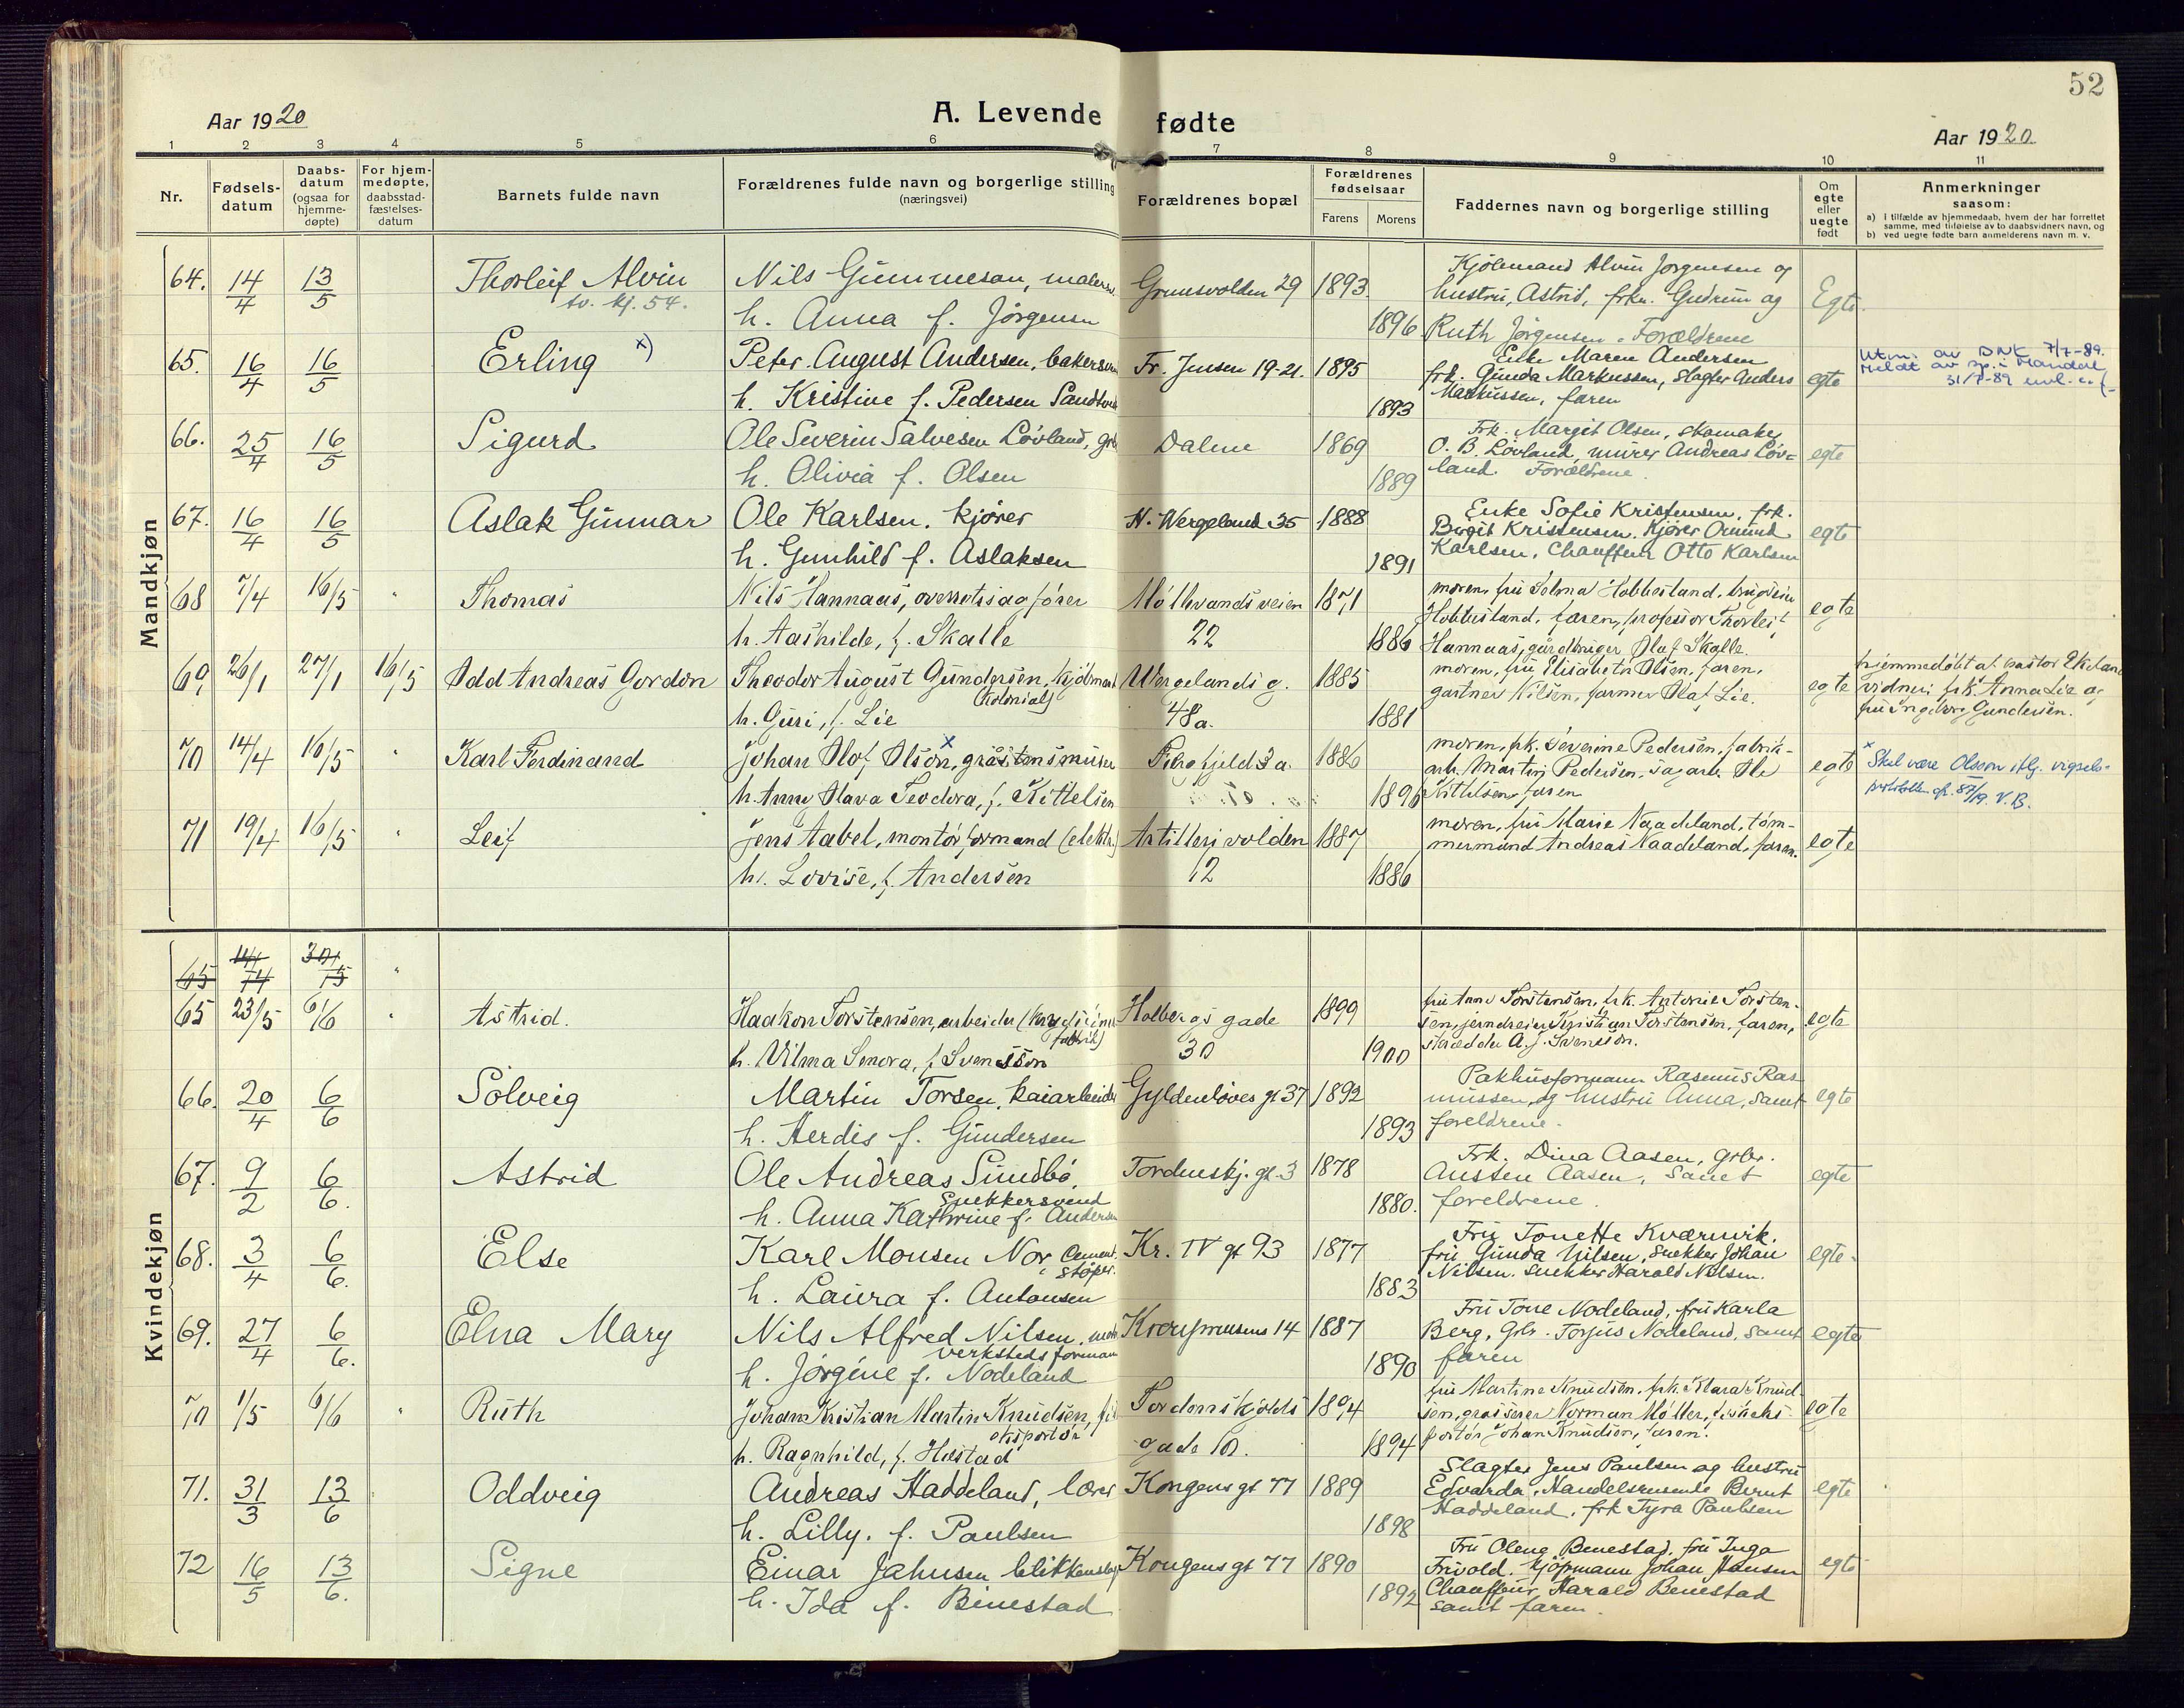 52
Aar 1920
A. Levende fødte
Aar 1920.
1 2 3 4 5 6 7 8 9 10 11
Nr.
Fødsels-
datum
Daabs-
datum
(ogsaa for
hjemme-
døpte)
For hjem-
medøpte,
daabsstad-
fæstelses-
datum
Barnets fulde navn
Forældrenes fulde navn og borgerlige stilling
(næringsvei)
Forældrenes bopæl
Forældrenes
fødselsaar
Farens Morens
Faddernes navn og borgerlige stilling
Om
egte
eller
uegte
født
Anmerkninger
saasom:
a) i tilfælde av hjemmedaab, hvem der har forrettet
samme, med tilføielse av to daabsvidners navn, og
b) ved uegte fødte barn anmelderens navn m. v.
Mandkjøn
64. 14/4 13/5 Thorleif Alvin Nils Gunnuesan, 29 1893 Kjølemand Alvin Jørgensen og
tv. kj. 54. hustru, Astrid, frkn. Gudrun og Egte.
h. Anna f. Jørgensen 1896 Ruth Jørgensen. Forældrene
65. 16/4 16/5 Erling x) Peter August Andersen, bakersvend Fr. Jensen 19-21. 1895 Enke Maren Andersen
frk. Gunda Markussen, slagter Anders egte
h. Kristine f. Pedersen 1893 Markussen, faren
Utm. av DNK 7/7-89.
Meldt av sp. i Mandal
31/7-89
66. 25/4 16/5 Sigurd Ole Severin Salvesen Lövland, Dalene 1869 Frk. Margit Olsen, skomaker
O. B. Lövland, murer Andreas Löv= egte
h. Olivia f. Olsen 1889 land. Forældrene
67. 16/4 16/5 Aslak Gunnar Ole Karlsen. kjører H. Wergeland 35 1888 Enke Sofie Kristensen, frk.
Birgit Kristensen. Kjører Omund egte
h. Gunhild f. Aslaksen 1891 Karlsen, Chauffeur Otto Karlsen
68 7/4 16/5 " Thomas Nils Hannaas, overretssagfører 1871 moren, fru Selma Hobbesland,
22 Hobbesland, faren, professor Thorleif egte
h. Aashilde, f. Skalle 1886 Hannaas, gårdbruger Olaf Skalle.
69, 26/1 27/1 16/5 Odd Andreas Gordon Theodor August Gundersen, kjøbmand Wergelands g. 1885 moren, fru Elisabeth Olsen, faren,
(Kolonial) gartner Nilsen, farmer Olaf Lie. egte
h. Guri, f. Lie 48a. 1881
hjemmedøbt af pastor Ekeland
vidner: frk. Anna Lie og
fru Ingeborg Gundersen.
70 14/4 16/5 " Karl Ferdinand Johan Olof Olson, x gråstensmurer 3 a. 1886 moren, frk. Severine Pedersen, fabrik-
arb. Martin Pedersen, sagarb. Ole egte
h. Anny Olava Teodora, f. Kittelsen 1896 Kittelsen, faren
x Skal være Olsson iflg. vigsels-
protokollen V. B.
71 19/4 16/5 " Leif Jens Aabel, montørformand (elektr.) Artillerivolden 1887 moren, fru Marie Naadeland, tøm-
mermand Andreas Naadeland, faren. egte
h. Lovise, f. Andersen 12 1886
Kvindekjøn
65
65 23/5 6/6 " Astrid. Haakon Torstensen, arbeider Holbergs gade 1899 fru Anne Torstensen, frk. Antonie Torsten-
fabrik) sen, jerndreier Kristian Torstensen, faren, egte
h. Vilma Senora, f. Svensson 30 1900 skrædder A. J. Svensson.
66. 20/4 6/6 Solveig Martin Torsen, kaiarbeider Gyldenløves gt 37 1892 Pakhusformann Rasmus Ras-
mussen, og hustru Anna, samt egte
h. Herdis f. Gundersen 1893 foreldrene.
67. 9/2 6/6. Astrid Ole Andreas Sundbö, Tordenskj. gt. 3 1878 Frk. Dina Aasen, grbr.
Snekkersvend Austen Aasen, Samt egte
h. Anna Kathrine f. Andersen 1880. foreldrene.
68. 3/4 6/6. Else Karl Monsen Nor Cement- Kr. IV gt 93 1877 Fru Tonette Kværnvik.
støper. fru Gunda Nilsen, snekker Johan egte.
h. Laura f. Antonsen 1883 Nilsen. snekker Harald Nilsen.
69. 27/4 6/6. Elna Mary Nils Alfred Nilsen, 14 1887 Fru Tone Nodeland, fru Karla
verkstedsformann Berg, Grbr. Torjus Nodeland, samt egte
h. Jörgine f. Nodeland 1890 faren
70 1/5 6/6 " Ruth Johan Kristian Martin Knudsen, Tordenskjolds 1894 fru Martine Knudsen, frk. Klara Knud-
eksportør sen, grosserer Norman Møller, fiskeeks- egte
h. Ragnhild, f. Hæstad gade 10. 1894 portør Johan Knudsen, faren.
71. 31/3 13/6 Oddveig Andreas Haddeland, lærer Kongens gt 77 1889 Slagter Jens Paulsen og hustru
Edvarda, Handelsreisende Bernt egte
h. Lilly. f. Paulsen 1898 Haddeland, frk Tyra Paulsen
72 16/5 13/6. Signe Einar Jahnsen blikkenslager Kongens gt 77 1890 Fru Oleng Benestad, fru Inga
Frivold. Kjöpmann Johan Hansen egte
h. Ida f. Binestad 1892 Chauffeur Harald Benestad
samt faren.